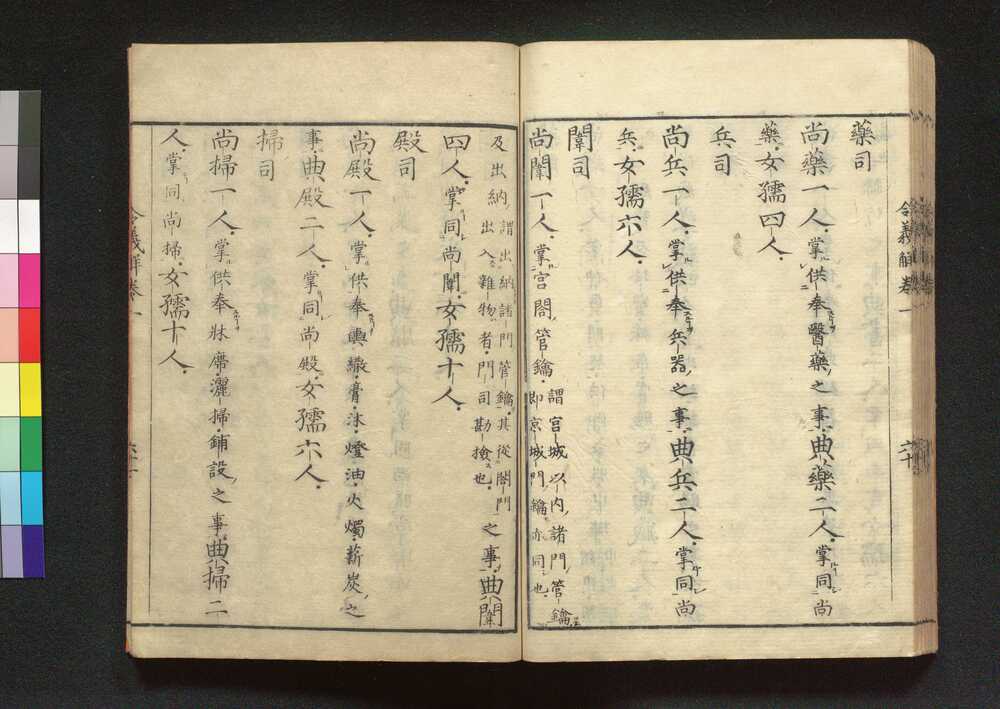 藥司
尚藥一人掌供奉醫藥之事典藥二人掌同尚
藥女孺四人
兵司
尚兵一人掌供奉兵器之事典兵二人掌同尚
兵女孺六人
闈司
尚闈一人掌宮閤管鑰謂宮城以内諸門管鑰
即京城門鑰亦同也
及出納謂出納諸門管鑰其從閤門
出入雜物者門司勘撿也之事典闈
四人掌同尚闈女孺十人
殿司
尚殿一人掌供奉輿繖膏沐燈油火燭薪炭之
事典殿二人掌同尚殿女孺六人
掃司
尚掃一人掌供奉牀席灑掃鋪設之事典掃二
人掌同尚掃女孺十人
令義解卷一
令義解卷一